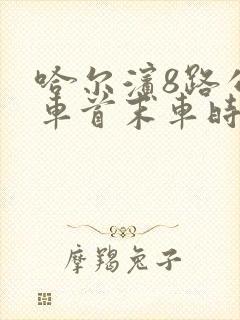 哈尔滨8路公
车首末车时
摩羯兔子